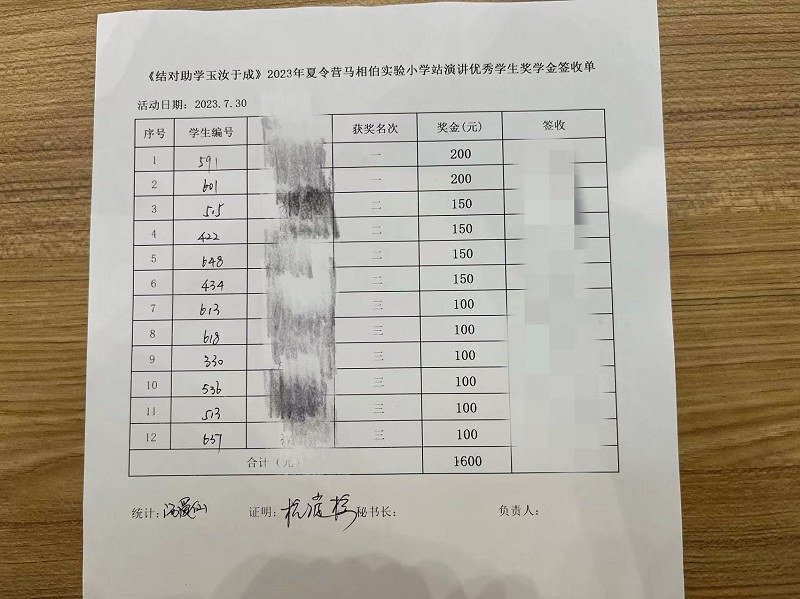 《结对助学玉汝于成》2023年夏令营马相伯实验小学站演讲优秀学生奖学金签收单
活动日期：2023.7.30
序号 学生编号 获奖名次 奖金(元) 签收
1 591 一 200
2 601 一 200
3 515 二 150
4 422 二 150
5 648 二 150
6 434 二 150
7 613 三 100
8 618 三 100
9 330 三 100
10 536 三 100
11 513 三 100
12 657 三 100
合计（元） 1600
统计： 证明： 秘书长： 负责人：